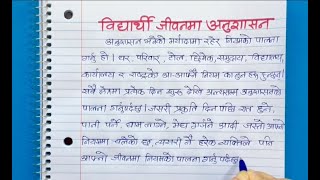 विद्यार्थी जीवनमा अनुशासन
अनुशासन भनेको मर्यादामा रहेर नियमको पालना
गर्नु हो । घर, परिवार, टोल, छिमेक, समुदाय, विद्यालय,
कार्यालय र राष्ट्रको आ-आफ्नै नियम कानुन हुन्छ
सबैले प्रत्येक दिन सुरु देखि अन्त्यसम्म अनुशासनको
पालना गर्नुपर्दछ । जसरी प्रकृति दिन पछि रात हुने,
पानी पर्ने, घाम लाग्ने, मेघ गर्जने आदी जस्तो आफ्नै
नियममा चलेको छ, यसरी नै हरेक व्यक्तिले पनि
आफ्नो जीवनमा नियमको पालना गर्नु पर्दछ